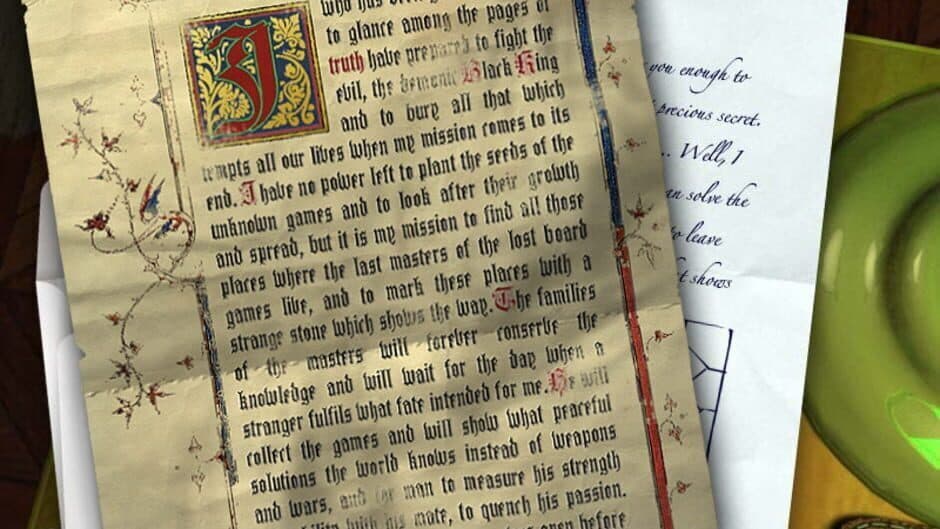 who has
to glance among the pages of
truth have prepared to fight the
evil, the demonic Black King
and to bury all that which
tempts all our lives when my mission comes to its
end. I have no power left to plant the seeds of the
unknown games and to look after their growth
and spread, but it is my mission to find all those
places where the last masters of the lost board
games live, and to mark these places with a
strange stone which shows the way. The families
of the masters will forever conserve the
knowledge and will wait for the day when a
stranger fulfils what fate intended for me. He will
collect the games and will show what peaceful
solutions the world knows instead of weapons
and wars, and the man to measure his strength
with his mate, to quench his passion.
open before
you enough to
precious secret.
... Well, I
solve the
to leave
shows